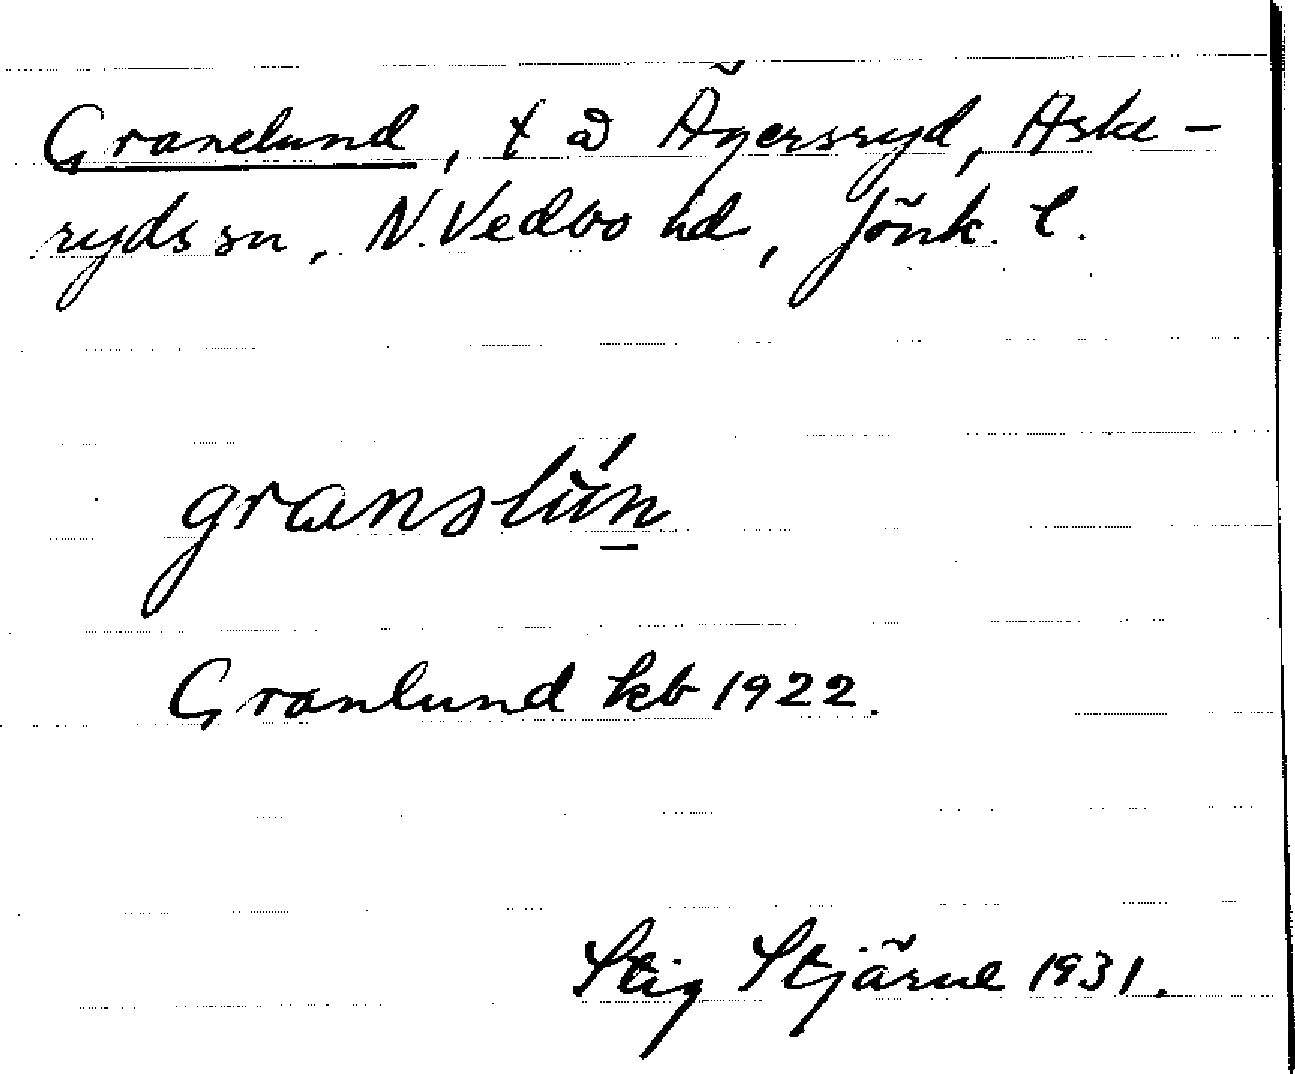 Granelund, t a Ägersryd, Aske-
rydssn, N. Vedbo hd, Jönk. l.
granslún
Granlund kb 1922.
Stig Stjärne 1931.